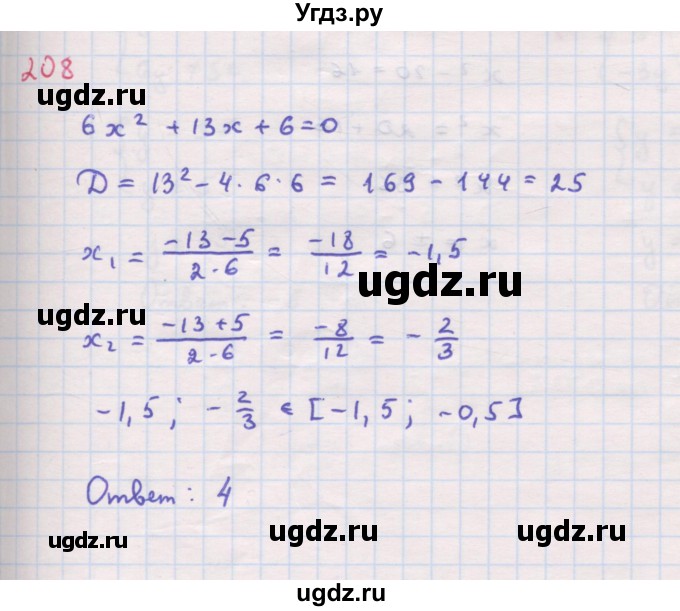 Угдз.ру
208
ugdz.ru
ugdz.ru
6x² + 13x + 6 = 0
D = 13² - 4 · 6 · 6 = 169 - 144 = 25
x₁ = \frac{-13 - 5}{2 · 6} = \frac{-18}{12} = -1,5
ugdz.ru
ugdz.ru
x₂ = \frac{-13 + 5}{2 · 6} = \frac{-8}{12} = -\frac{2}{3}
-1,5; -\frac{2}{3} ∈ [-1,5; -0,5]
Ответ: 4
ugdz.ru
ugdz.ru
ugdz.ru
ugdz.ru